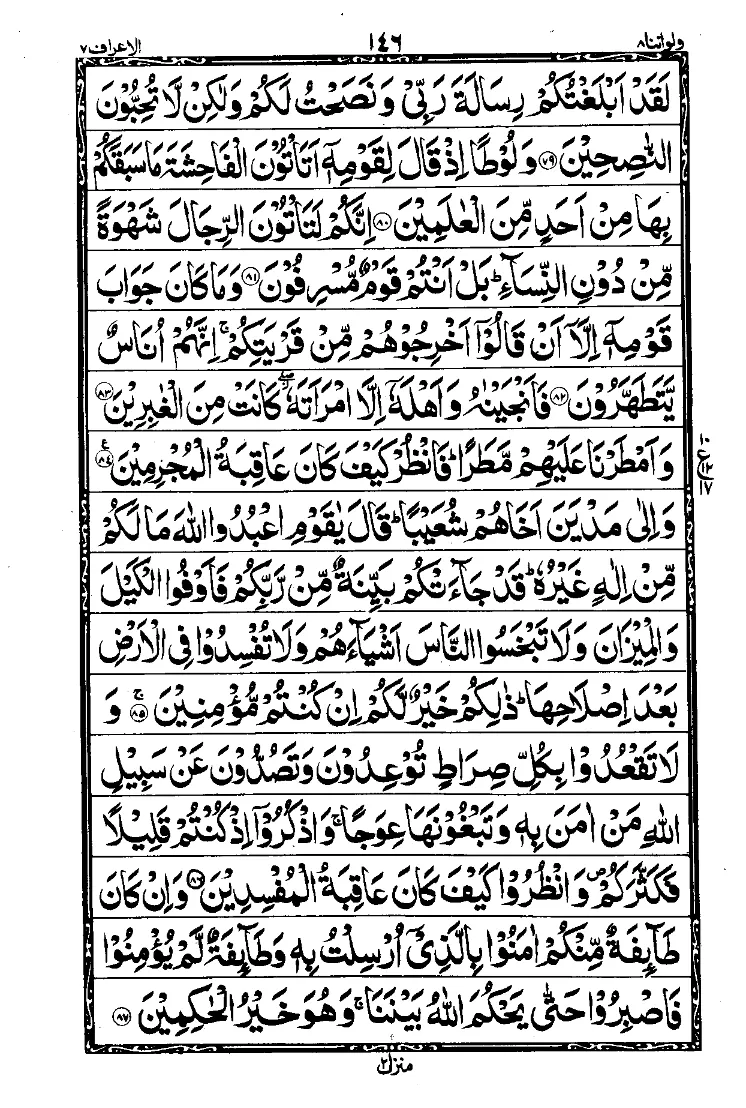 ولواننا ٨ ١٤٦ الاعراف ٧
لَقَدْ اَبْلَغْتُكُمْ رِسَالَةَ رَبِّيْ وَ نَصَحْتُ لَكُمْ وَلٰكِنْ لَّا تُحِبُّوْنَ
النّٰصِحِيْنَ ﴿٧٩﴾ وَ لُوْطًا اِذْ قَالَ لِقَوْمِهٖۤ اَتَاْتُوْنَ الْفَاحِشَةَ مَا سَبَقَكُمْ
بِهَا مِنْ اَحَدٍ مِّنَ الْعٰلَمِيْنَ ﴿٨٠﴾ اِنَّكُمْ لَتَاْتُوْنَ الرِّجَالَ شَهْوَةً
مِّنْ دُوْنِ النِّسَآءِ ؕ بَلْ اَنْتُمْ قَوْمٌ مُّسْرِفُوْنَ ﴿٨١﴾ وَمَا كَانَ جَوَابَ
قَوْمِهٖۤ اِلَّاۤ اَنْ قَالُوْۤا اَخْرِجُوْهُمْ مِّنْ قَرْيَتِكُمْ ۚ اِنَّهُمْ اُنَاسٌ
يَّتَطَهَّرُوْنَ ﴿٨٢﴾ فَاَنْجَيْنٰهُ وَ اَهْلَهٗۤ اِلَّا امْرَاَتَهٗ ۖؗ كَانَتْ مِنَ الْغٰبِرِيْنَ ﴿٨٣﴾
وَ اَمْطَرْنَا عَلَيْهِمْ مَّطَرًا ؕ فَانْظُرْ كَيْفَ كَانَ عَاقِبَةُ الْمُجْرِمِيْنَ ﴿٨٤﴾ ع
١٠ ع ١٢ ١٧
وَ اِلٰى مَدْيَنَ اَخَاهُمْ شُعَيْبًا ؕ قَالَ يٰقَوْمِ اعْبُدُوا اللّٰهَ مَا لَكُمْ
مِّنْ اِلٰهٍ غَيْرُهٗ ؕ قَدْ جَآءَتْكُمْ بَيِّنَةٌ مِّنْ رَّبِّكُمْ فَاَوْفُوا الْكَيْلَ
وَالْمِيْزَانَ وَلَا تَبْخَسُوا النَّاسَ اَشْيَآءَهُمْ وَلَا تُفْسِدُوْا فِي الْاَرْضِ
بَعْدَ اِصْلَاحِهَا ؕ ذٰلِكُمْ خَيْرٌ لَّكُمْ اِنْ كُنْتُمْ مُّؤْمِنِيْنَ ۚ﴿٨٥﴾ وَ
لَا تَقْعُدُوْا بِكُلِّ صِرَاطٍ تُوْعِدُوْنَ وَتَصُدُّوْنَ عَنْ سَبِيْلِ
اللّٰهِ مَنْ اٰمَنَ بِهٖ وَتَبْغُوْنَهَا عِوَجًا ۚ وَاذْكُرُوْۤا اِذْ كُنْتُمْ قَلِيْلًا
فَكَثَّرَكُمْ ۪ وَانْظُرُوْا كَيْفَ كَانَ عَاقِبَةُ الْمُفْسِدِيْنَ ﴿٨٦﴾ وَاِنْ كَانَ
طَآئِفَةٌ مِّنْكُمْ اٰمَنُوْا بِالَّذِيْۤ اُرْسِلْتُ بِهٖ وَطَآئِفَةٌ لَّمْ يُؤْمِنُوْا
فَاصْبِرُوْا حَتّٰى يَحْكُمَ اللّٰهُ بَيْنَنَا ۚ وَهُوَ خَيْرُ الْحٰكِمِيْنَ ﴿٨٧﴾
منزل ٢